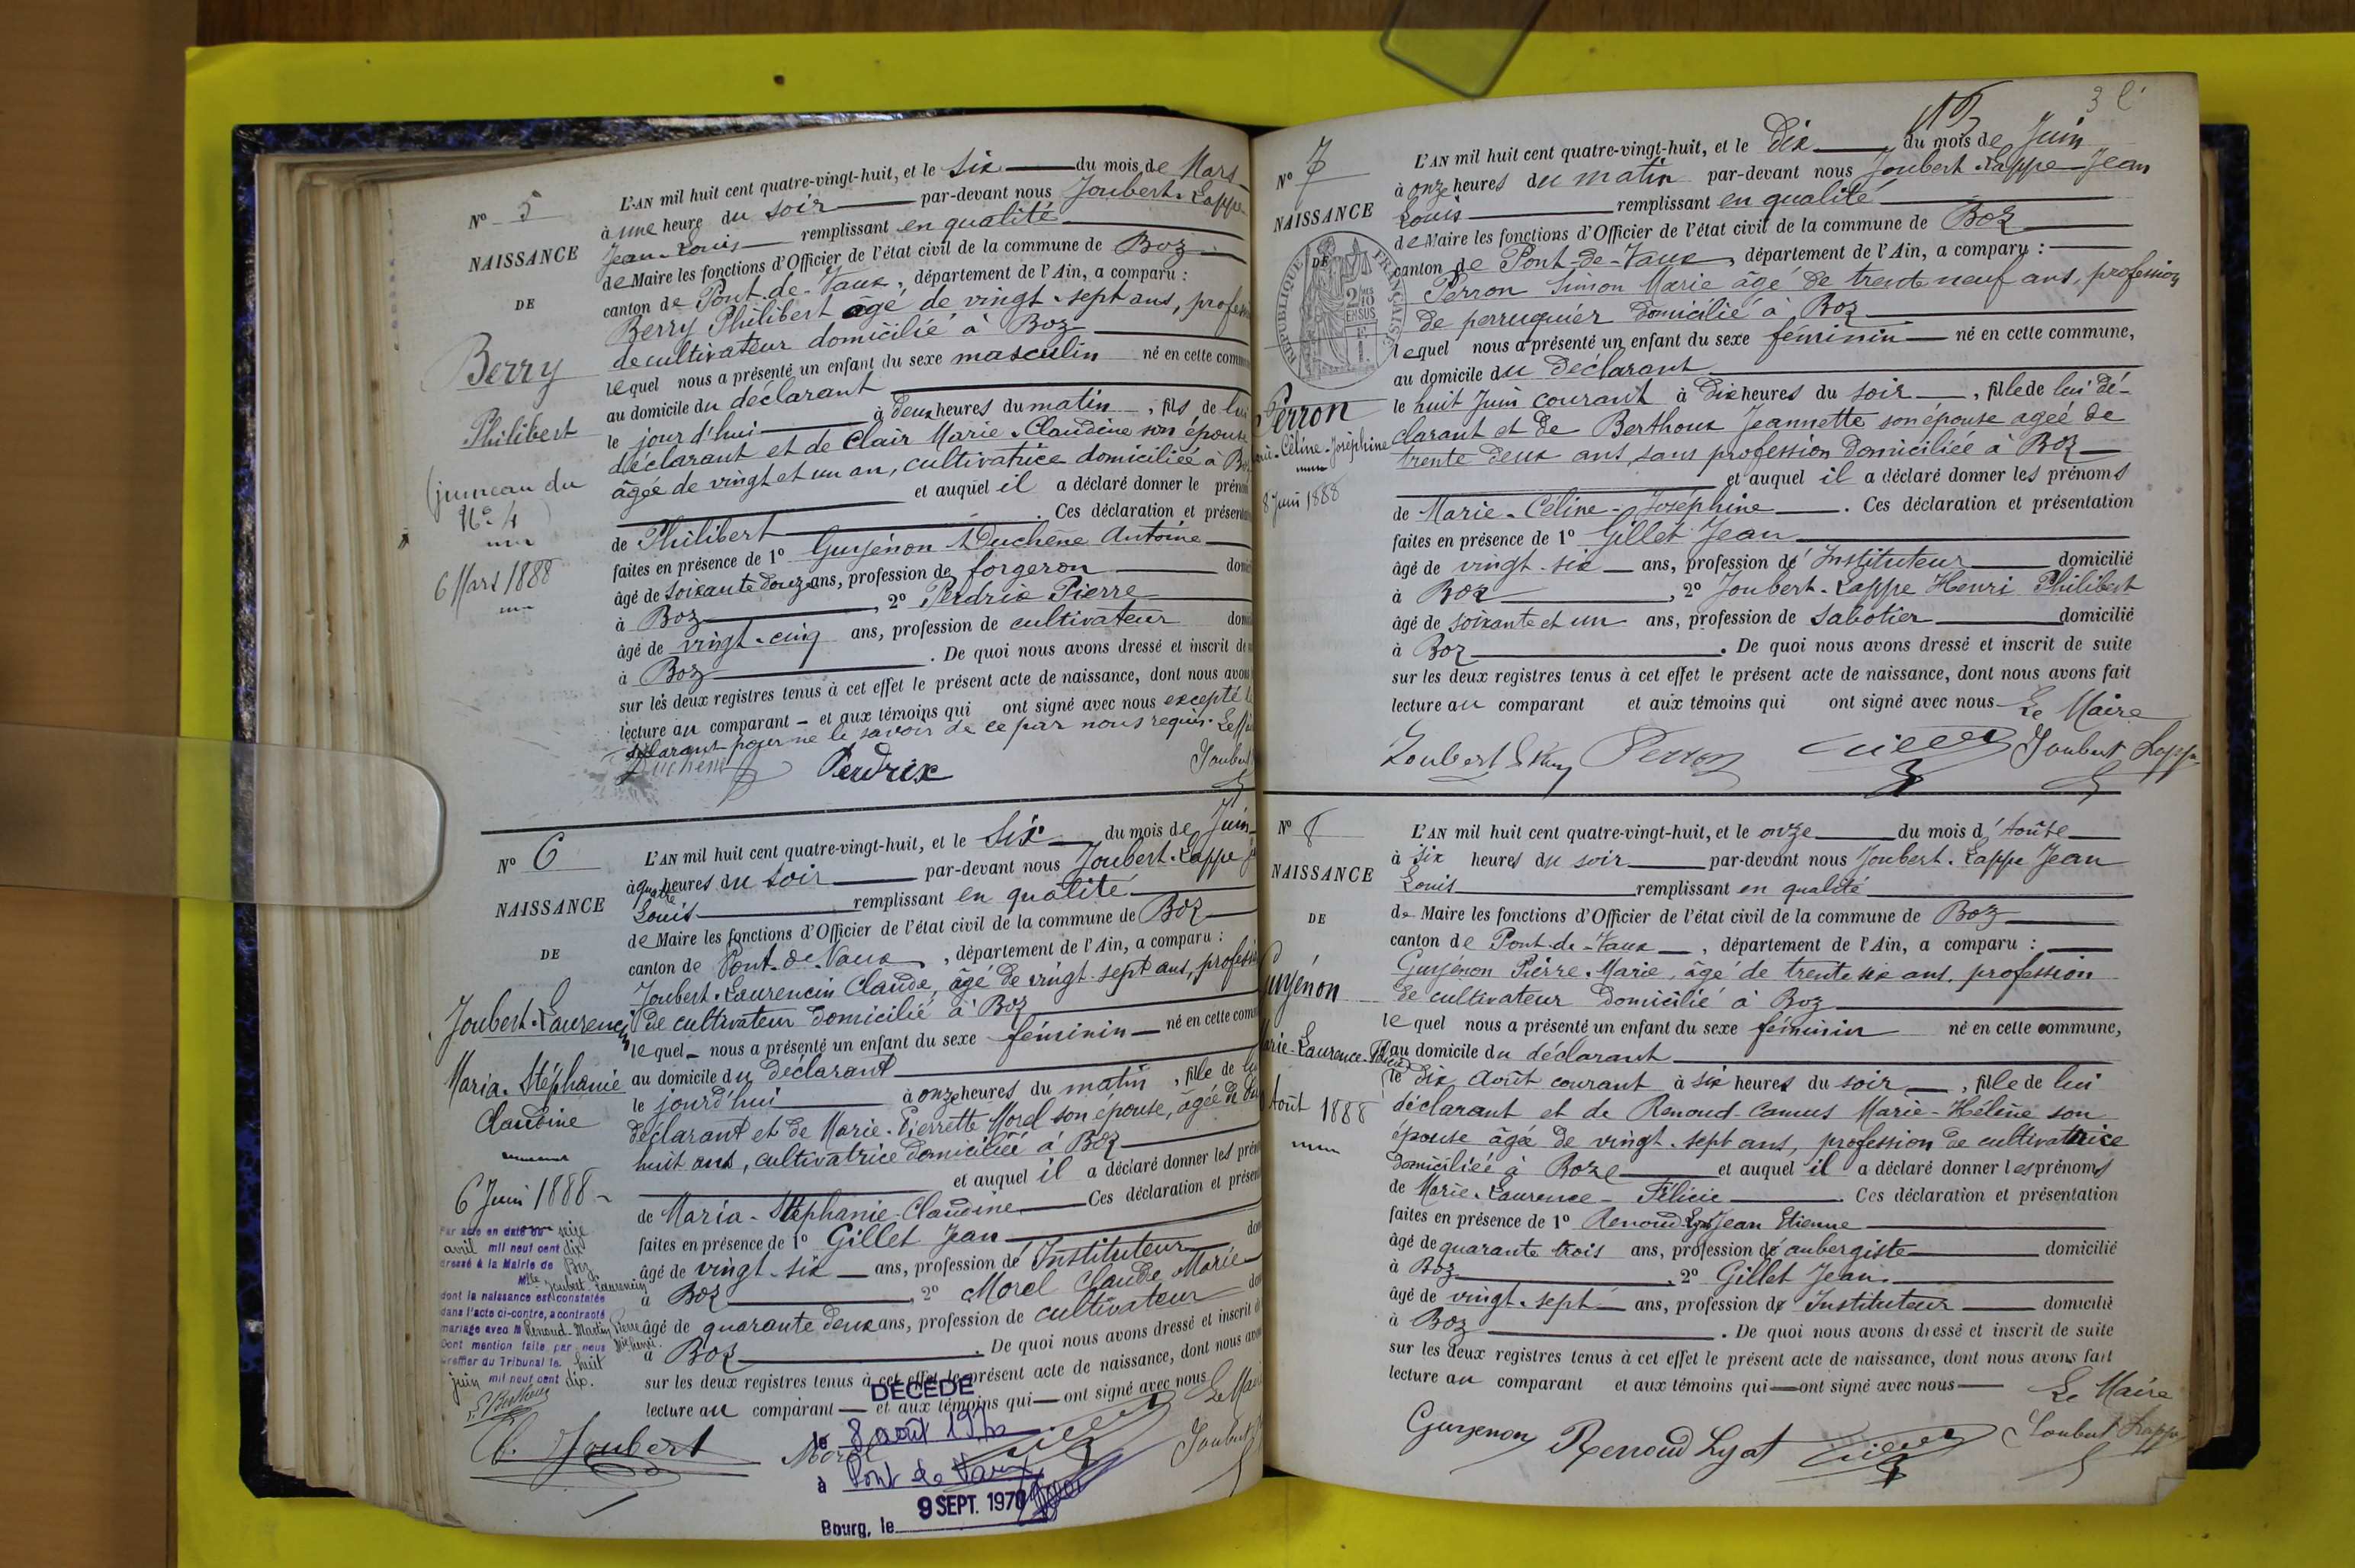 N° 5
NAISSANCE
DE
Berry
Philibert
(jumeau du
N° 4)
6 Mars 1888
L'AN mil huit cent quatre-vingt-huit, et le six du mois de Mars
à une heure du soir par-devant nous Joubert-Lappe
Jean-Louis remplissant en qualité
de Maire les fonctions d'Officier de l'état civil de la commune de Boz
canton de Pont-de-Vaux, département de l'Ain, a comparu :
Berry Philibert âgé de vingt-sept ans,
de cultivateur domicilié à Boz
lequel nous a présenté un enfant du sexe masculin né en cette
au domicile du déclarant
le jour d'hui à deux heures du matin, fils de lui
déclarant et de Clair Marie-Claudine son épouse
âgée de vingt et un an, cultivatrice domiciliée à
et auquel il a déclaré donner le
de Philibert. Ces déclaration et
faites en présence de 1° Guyénon Duchêne Antoine
âgé de soixante douze ans, profession de forgeron
à Boz, 2° Perdrix Pierre
âgé de vingt-cinq ans, profession de cultivateur
à Boz. De quoi nous avons dressé et inscrit
sur les deux registres tenus à cet effet le présent acte de naissance, dont nous
lecture au comparant et aux témoins qui ont signé avec nous excepté le
déclarant pour ne le savoir de ce par nous requis.
Duchêne Perdrix Joubert
N° 6
NAISSANCE
DE
Joubert-Laurencin
Maria-Stéphanie
Claudine
6 Juin 1888
Par acte en date du seize
avril mil neuf cent dix
dressé à la Mairie de Boz
Mlle Joubert-Laurencin
dont la naissance est constatée
dans l'acte ci-contre, a contracté
mariage avec M Renoud-Martin Pierre
Dont mention faite par nous
Greffier du Tribunal le huit
juin mil neuf cent dix.
L'AN mil huit cent quatre-vingt-huit, et le six du mois de Juin
à quatre heures du soir par-devant nous Joubert-Lappe
Louis remplissant en qualité
de Maire les fonctions d'Officier de l'état civil de la commune de Boz
canton de Pont-de-Vaux, département de l'Ain, a comparu :
Joubert-Laurencin Claude, âgé de vingt-sept ans,
de cultivateur domicilié à Boz
lequel nous a présenté un enfant du sexe féminin né en cette
au domicile du déclarant
le jourd'hui à onze heures du matin, fille de
déclarant et de Marie-Pierrette Morel son épouse, âgée de
huit ans, cultivatrice domiciliée à Boz
et auquel il a déclaré donner les
de Maria-Stéphanie-Claudine Ces déclaration et
faites en présence de 1° Gillet Jean
âgé de vingt-six ans, profession d'Instituteur
à Boz, 2° Morel Claude Marie
âgé de quarante deux ans, profession de cultivateur
à Boz. De quoi nous avons dressé et inscrit
sur les deux registres tenus à cet effet le présent acte de naissance, dont nous
lecture au comparant et aux témoins qui ont signé avec nous
C. Joubert Morel Joubert
DÉCÉDÉ
le 8 août
à Pont de Vaux
9 SEPT. 1970
Bourg, le
N° 7
NAISSANCE
DE
RÉPUBLIQUE FRANÇAISE
Perron
Céline-Joséphine
8 Juin 1888
L'AN mil huit cent quatre-vingt-huit, et le Dix du mois de Juin
à onze heures du matin par-devant nous Joubert-Lappe Jean
Louis remplissant en qualité
de Maire les fonctions d'Officier de l'état civil de la commune de Boz
canton de Pont-de-Vaux, département de l'Ain, a comparu :
Perron Simon Marie âgé de trente neuf ans, profession
de perruquier domicilié à Boz
lequel nous a présenté un enfant du sexe féminin né en cette commune,
au domicile du déclarant
le huit Juin courant à dix heures du soir, fille de lui dé-
clarant et de Berthoux Jeannette son épouse âgée de
trente deux ans, sans profession domiciliée à Boz
et auquel il a déclaré donner les prénoms
de Marie-Céline-Joséphine. Ces déclaration et présentation
faites en présence de 1° Gillet Jean
âgé de vingt-six ans, profession d'Instituteur domicilié
à Boz, 2° Joubert-Lappe Henri Philibert
âgé de soixante et un ans, profession de sabotier domicilié
à Boz. De quoi nous avons dressé et inscrit de suite
sur les deux registres tenus à cet effet le présent acte de naissance, dont nous avons fait
lecture au comparant et aux témoins qui ont signé avec nous Le Maire
Joubert Perron Joubert Lappe
N° 8
NAISSANCE
DE
Guyénon
Août 1888
L'AN mil huit cent quatre-vingt-huit, et le onze du mois d'Août
à six heures du soir par-devant nous Joubert-Lappe Jean
Louis remplissant en qualité
de Maire les fonctions d'Officier de l'état civil de la commune de Boz
canton de Pont-de-Vaux, département de l'Ain, a comparu :
Guyénon Pierre-Marie, âgé de trente six ans, profession
de cultivateur domicilié à Boz
lequel nous a présenté un enfant du sexe féminin né en cette commune,
au domicile du déclarant
le dix Août courant à six heures du soir, fille de lui
déclarant et de Renoud-Camus Marie-Hélène son
épouse âgée de vingt-sept ans, profession de cultivatrice
domiciliée à Boz et auquel il a déclaré donner les prénoms
de Marie-Laurence-Félicie. Ces déclaration et présentation
faites en présence de 1° Renoud-Lyat Jean Etienne
âgé de quarante trois ans, profession d'aubergiste domicilié
à Boz, 2° Gillet Jean
âgé de vingt-sept ans, profession d'Instituteur domicilié
à Boz. De quoi nous avons dressé et inscrit de suite
sur les deux registres tenus à cet effet le présent acte de naissance, dont nous avons fait
lecture au comparant et aux témoins qui ont signé avec nous
Le Maire
Guyenon Renoud Lyat Joubert Lappe